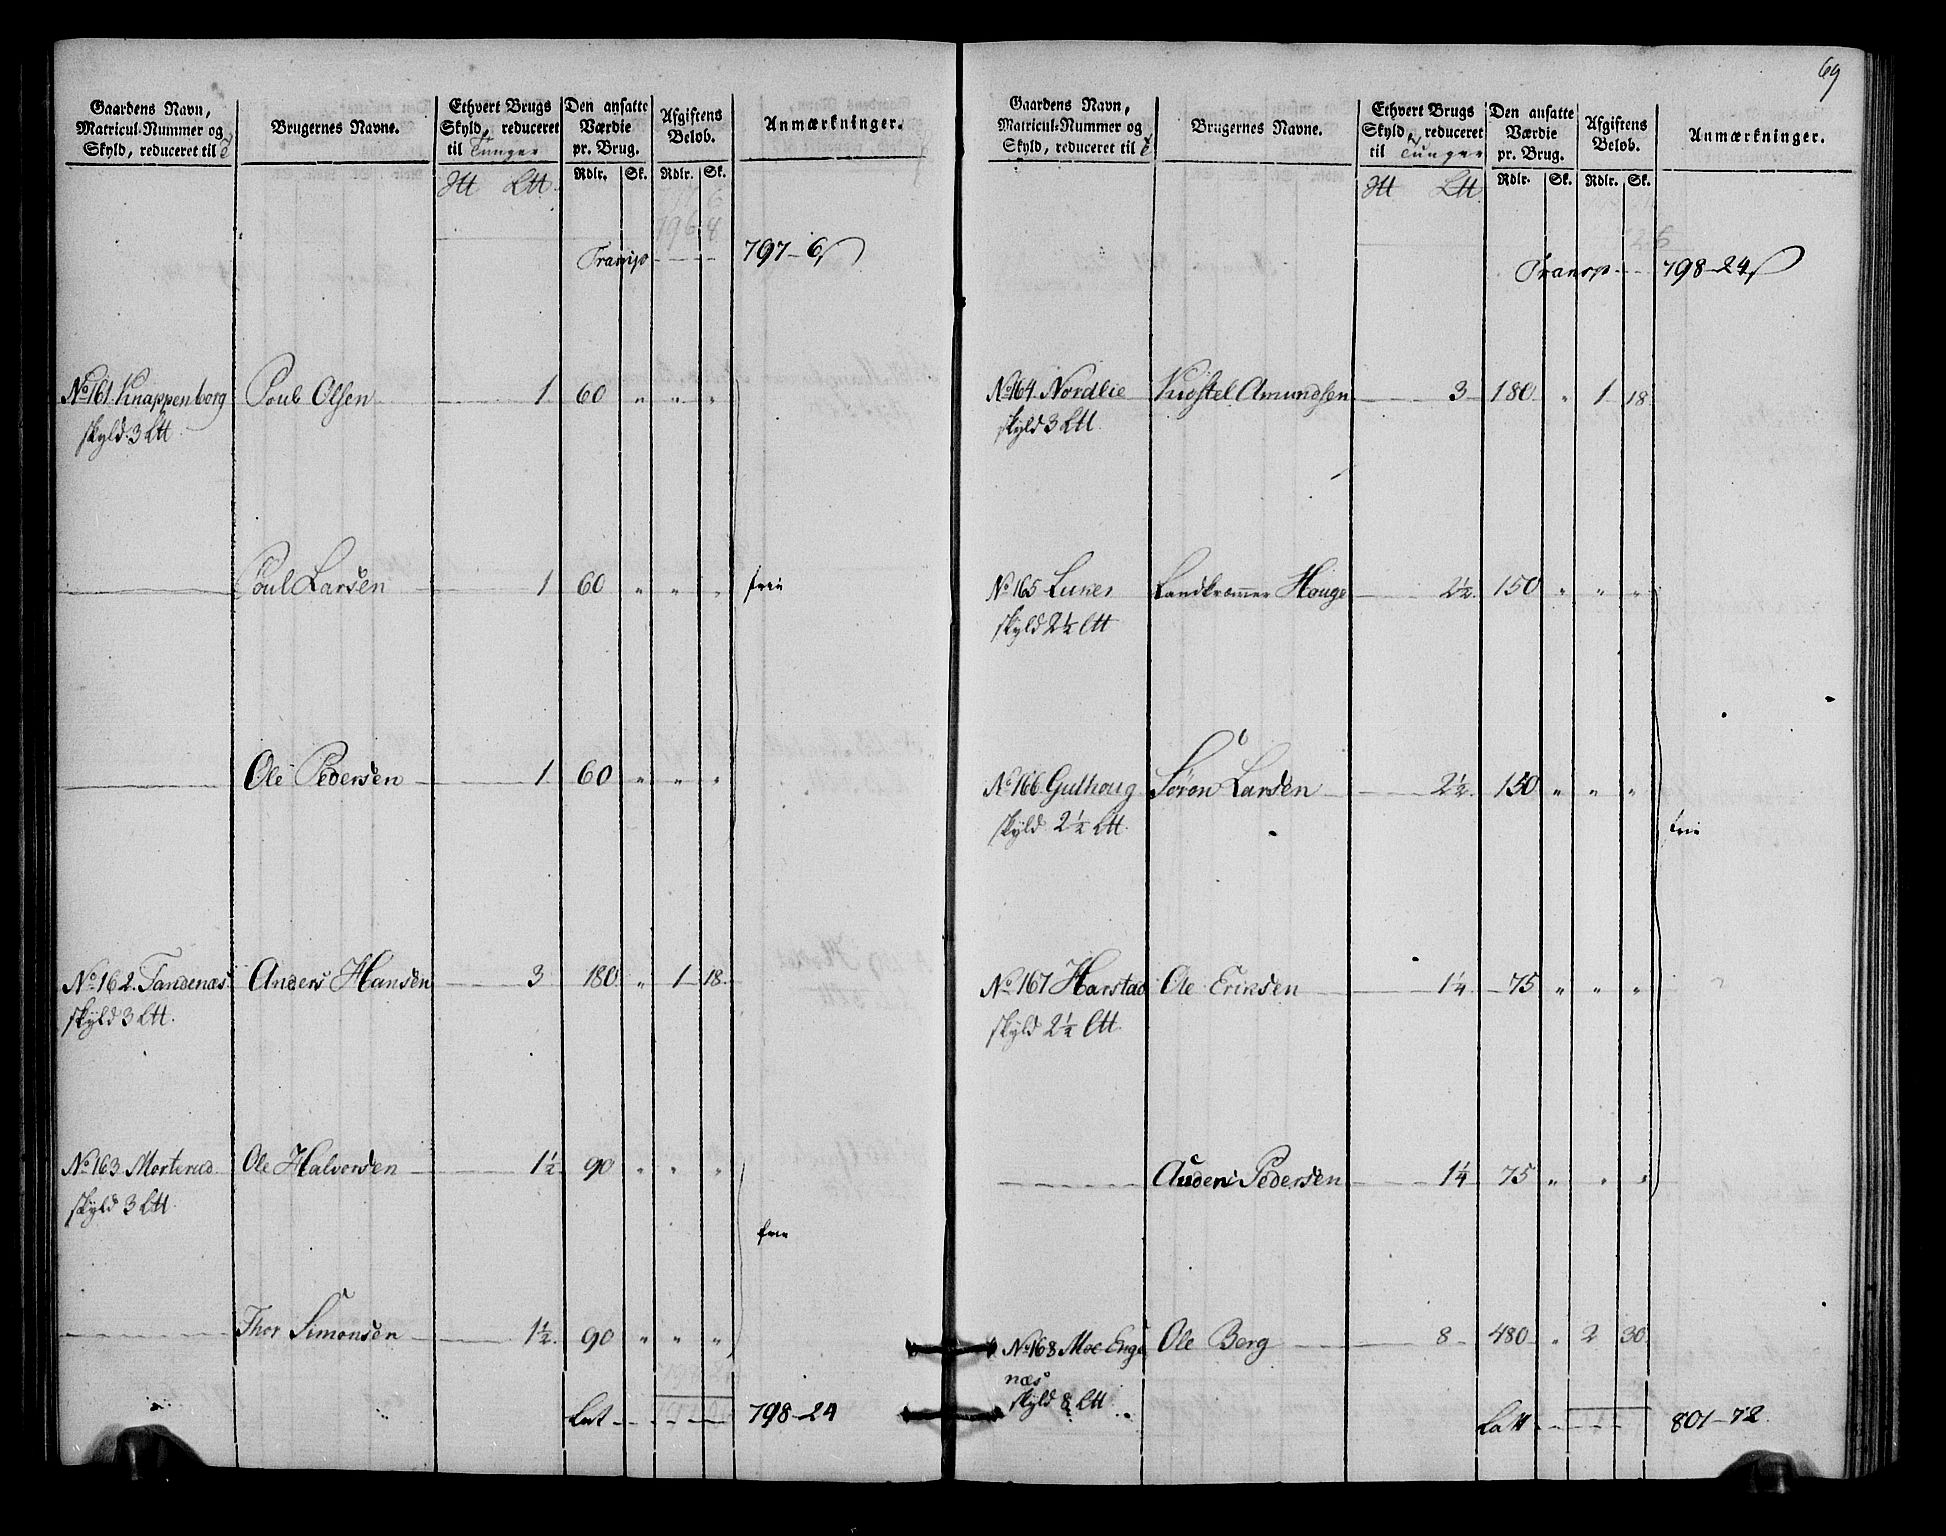 Gaardens Navn, Matricul-Nummer og Skyld, reduceret til
Brugernes Navne.
Ethvert Brugs Skyld, reduceret til Tunger
Den ansatte Værdie pr. Brug.
Afgiftens Beløb.
Anmærkninger.
Rdlr. Sk. Rdlr. Sk.
Transp 797-6
No 161 Knappenborg Poul Olsen 1 60 " " "
skyld 3 Ltt
Poul Larsen 1 60 " " " frie
Ole Pedersen 1 60 " " "
No 162. Tandenæs Anders Hansen 3 180 " 1 18
skyld 3 Ltt.
No 163 Morterud Ole Halvorsen 1½ 90 " " "
skyld 3 Ltt
frie
Thor Simonsen 1½ 90 " " "
Lat 798-24
69
Gaardens Navn, Matricul-Nummer og Skyld, reduceret til
Brugernes Navne.
Ethvert Brugs Skyld, reduceret til Tunger
Den ansatte Værdie pr. Brug.
Afgiftens Beløb.
Anmærkninger.
Rdlr. Sk. Rdlr. Sk.
Transp 798-24
No 164 Nordlie Amundsen 3 180 " 1 18
skyld 3 Ltt
No 165 Landkræmmer Houge 2½ 150 " " "
skyld 2½ Ltt
No 166 Gulhoug Søren Larsen 2½ 150 " " "
skyld 2½ Ltt.
frie
No 167 Harstad Ole Eriksen 1¼ 75 " " "
skyld 2½ Ltt
Auden Pedersen 1¼ 75 " " "
No 168 Moe Enge Ole Berg 8 480 " 2 30
næs
skyld 8 Ltt
Latt 801-72